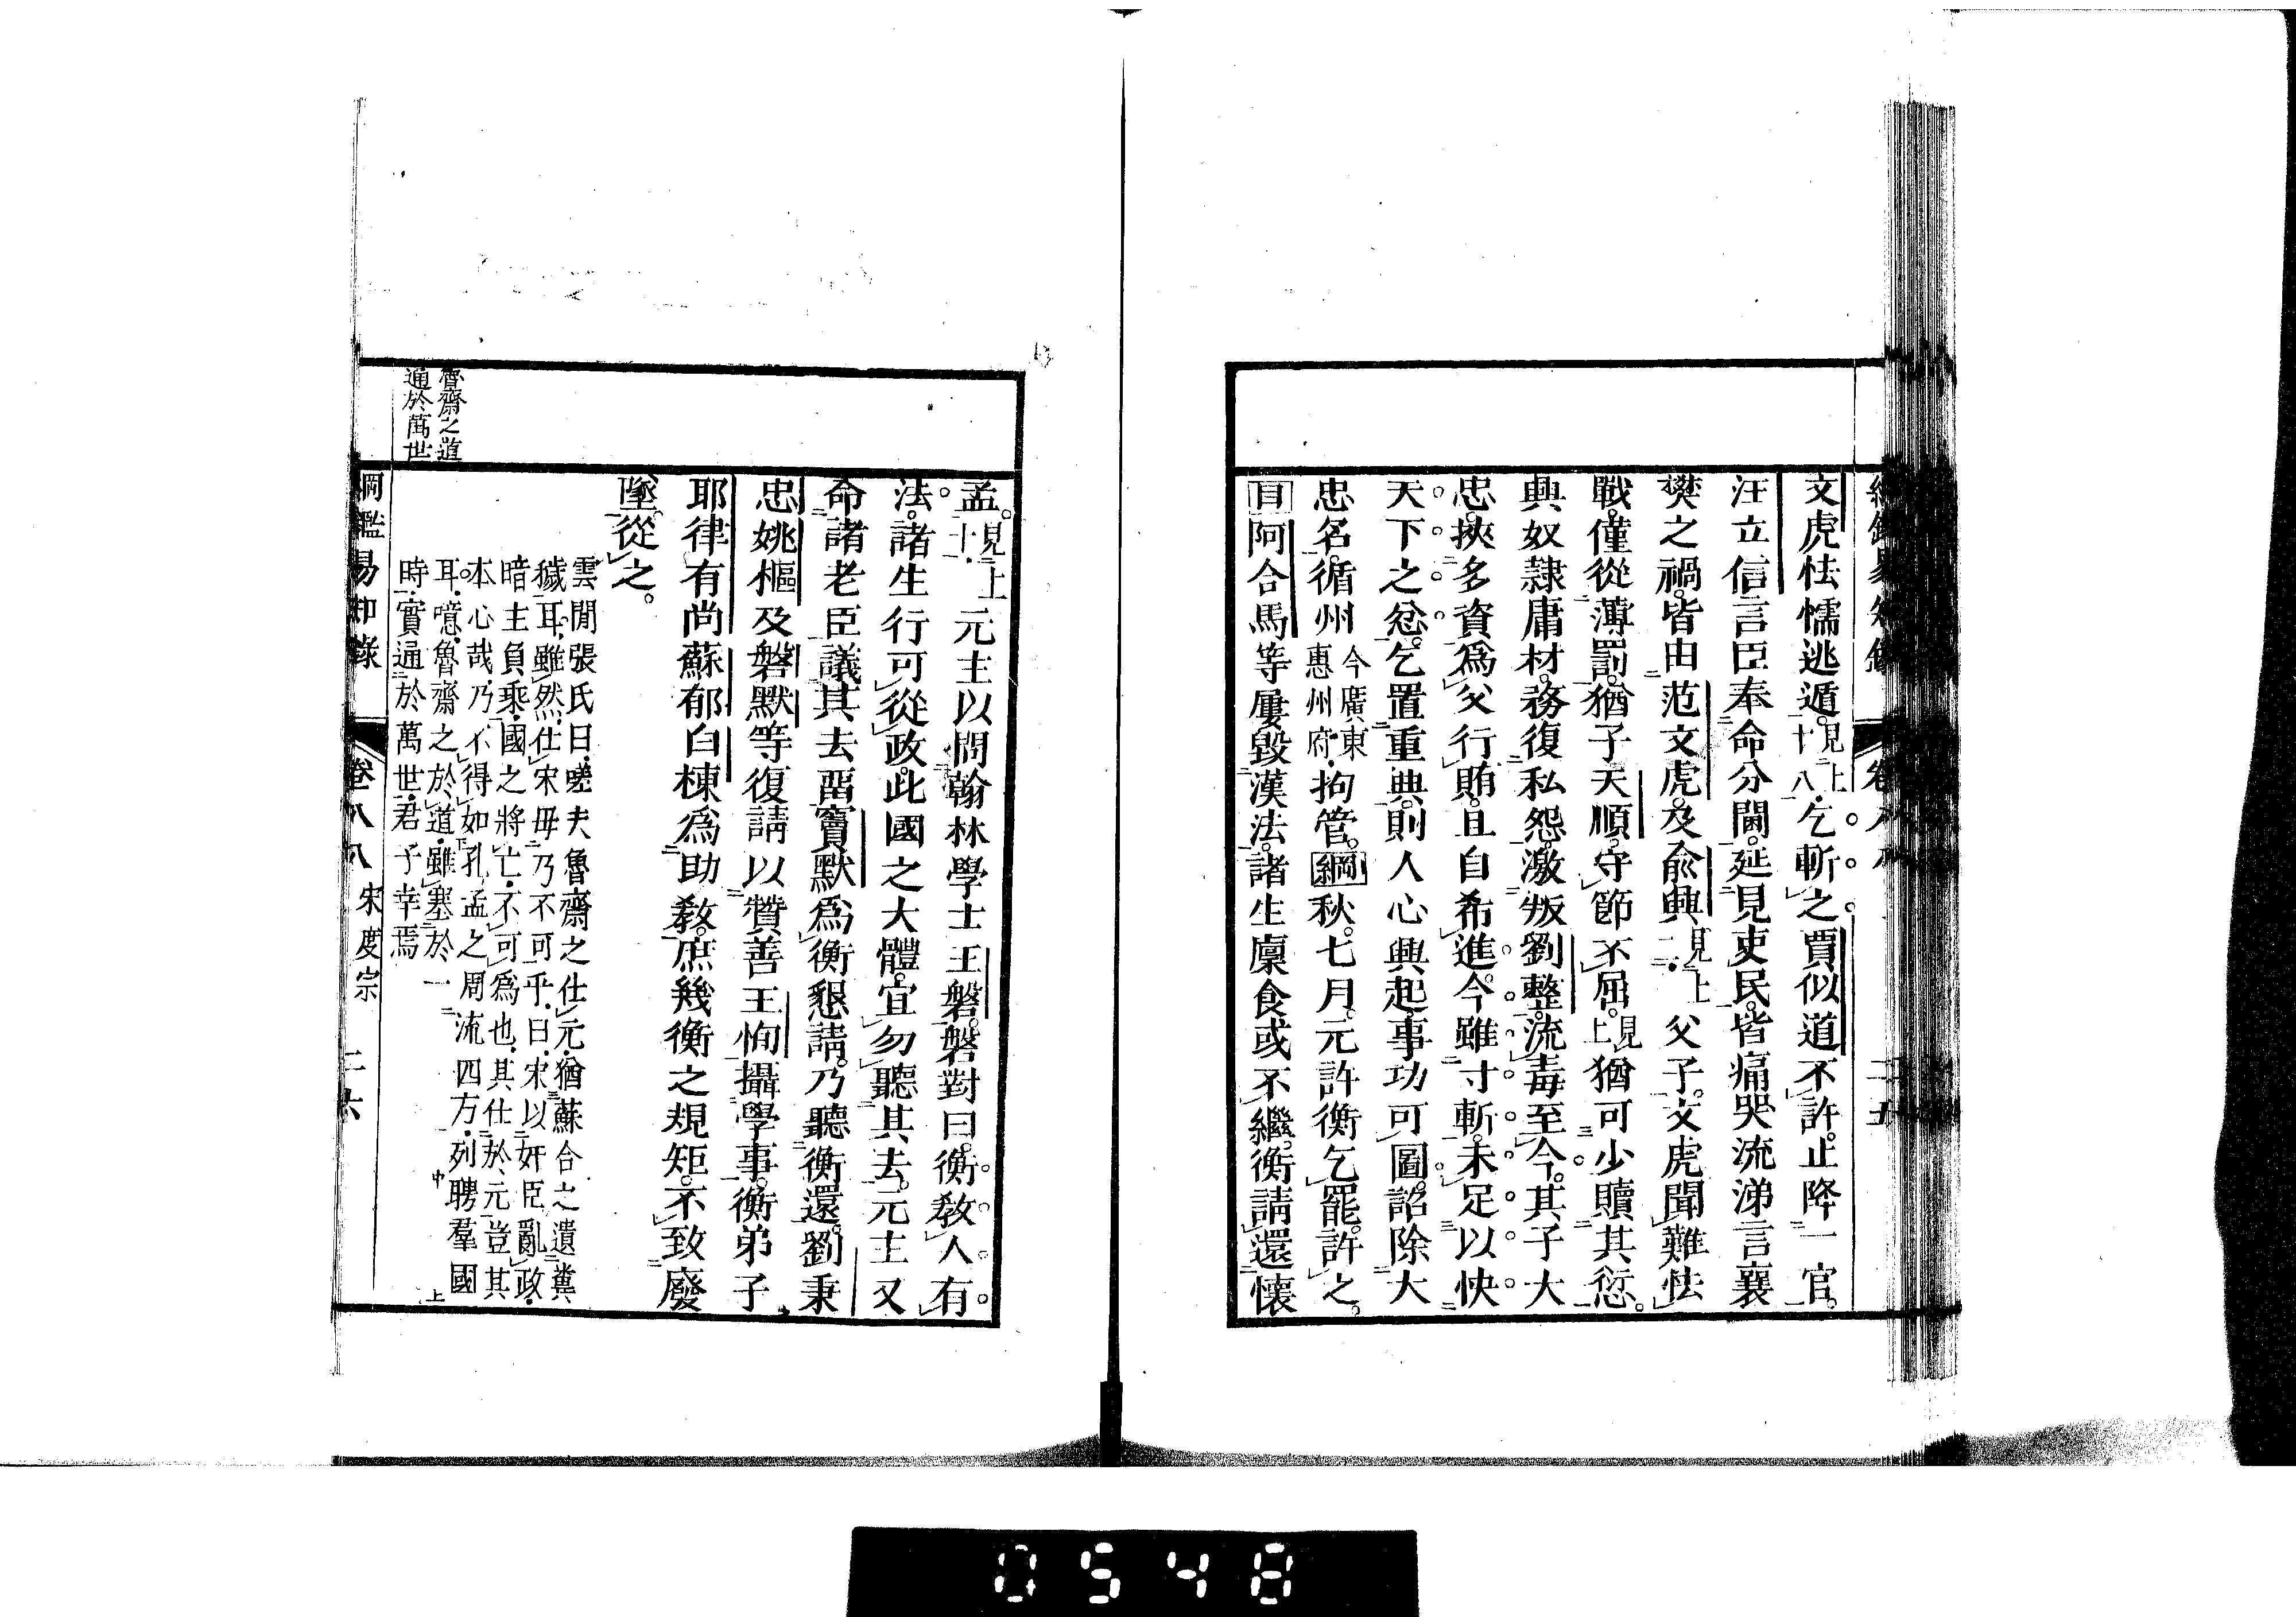 文虎怯懦逃遁見上十八乞斬之賈似道不許止降一官
汪立信言臣奉命分閫延見吏民皆痛哭流涕言襄
樊之禍皆由范文虎及俞興見上二父子文虎聞難怯
戰僅從薄罰猶子天順守節不屈見上猶可少贖其愆
興奴隸庸材務復私怨激叛劉整流毒至今其子大
忠挾多資爲父行賄且自希進今雖寸斬未足以快
天下之忿乞置重典則人心興起事功可圖詔除大
忠名循州今廣東惠州府拘管綱秋七月元許衡乞罷許之
目阿合馬等屢毀漢法諸生廩食或不繼衡請還懷
孟見上十元主以問翰林學士王磐磐對曰衡教人有
法諸生行可從政此國之大體宜勿聽其去元主又
命諸老臣議其去留竇默爲衡懇請乃聽衡還劉秉
忠姚樞及磐默等復請以贊善王恂攝學事衡弟子
耶律有尚蘇郁白棟爲助教庶幾衡之規矩不致廢
墜從之
雲間張氏曰嗟夫魯齋之仕元猶蘇合之遺糞
穢耳雖然仕宋毋乃不可乎曰宋以奸臣亂政
暗主負乘國之將亡不可爲也其仕於元豈其
本心哉乃不得如孔孟之周流四方列聘羣國
耳噫魯齋之於道雖塞於一
時實通於萬世君子幸焉
魯齋之道
通於萬世
綱鑑易知錄 卷八八 宋度宗 二六